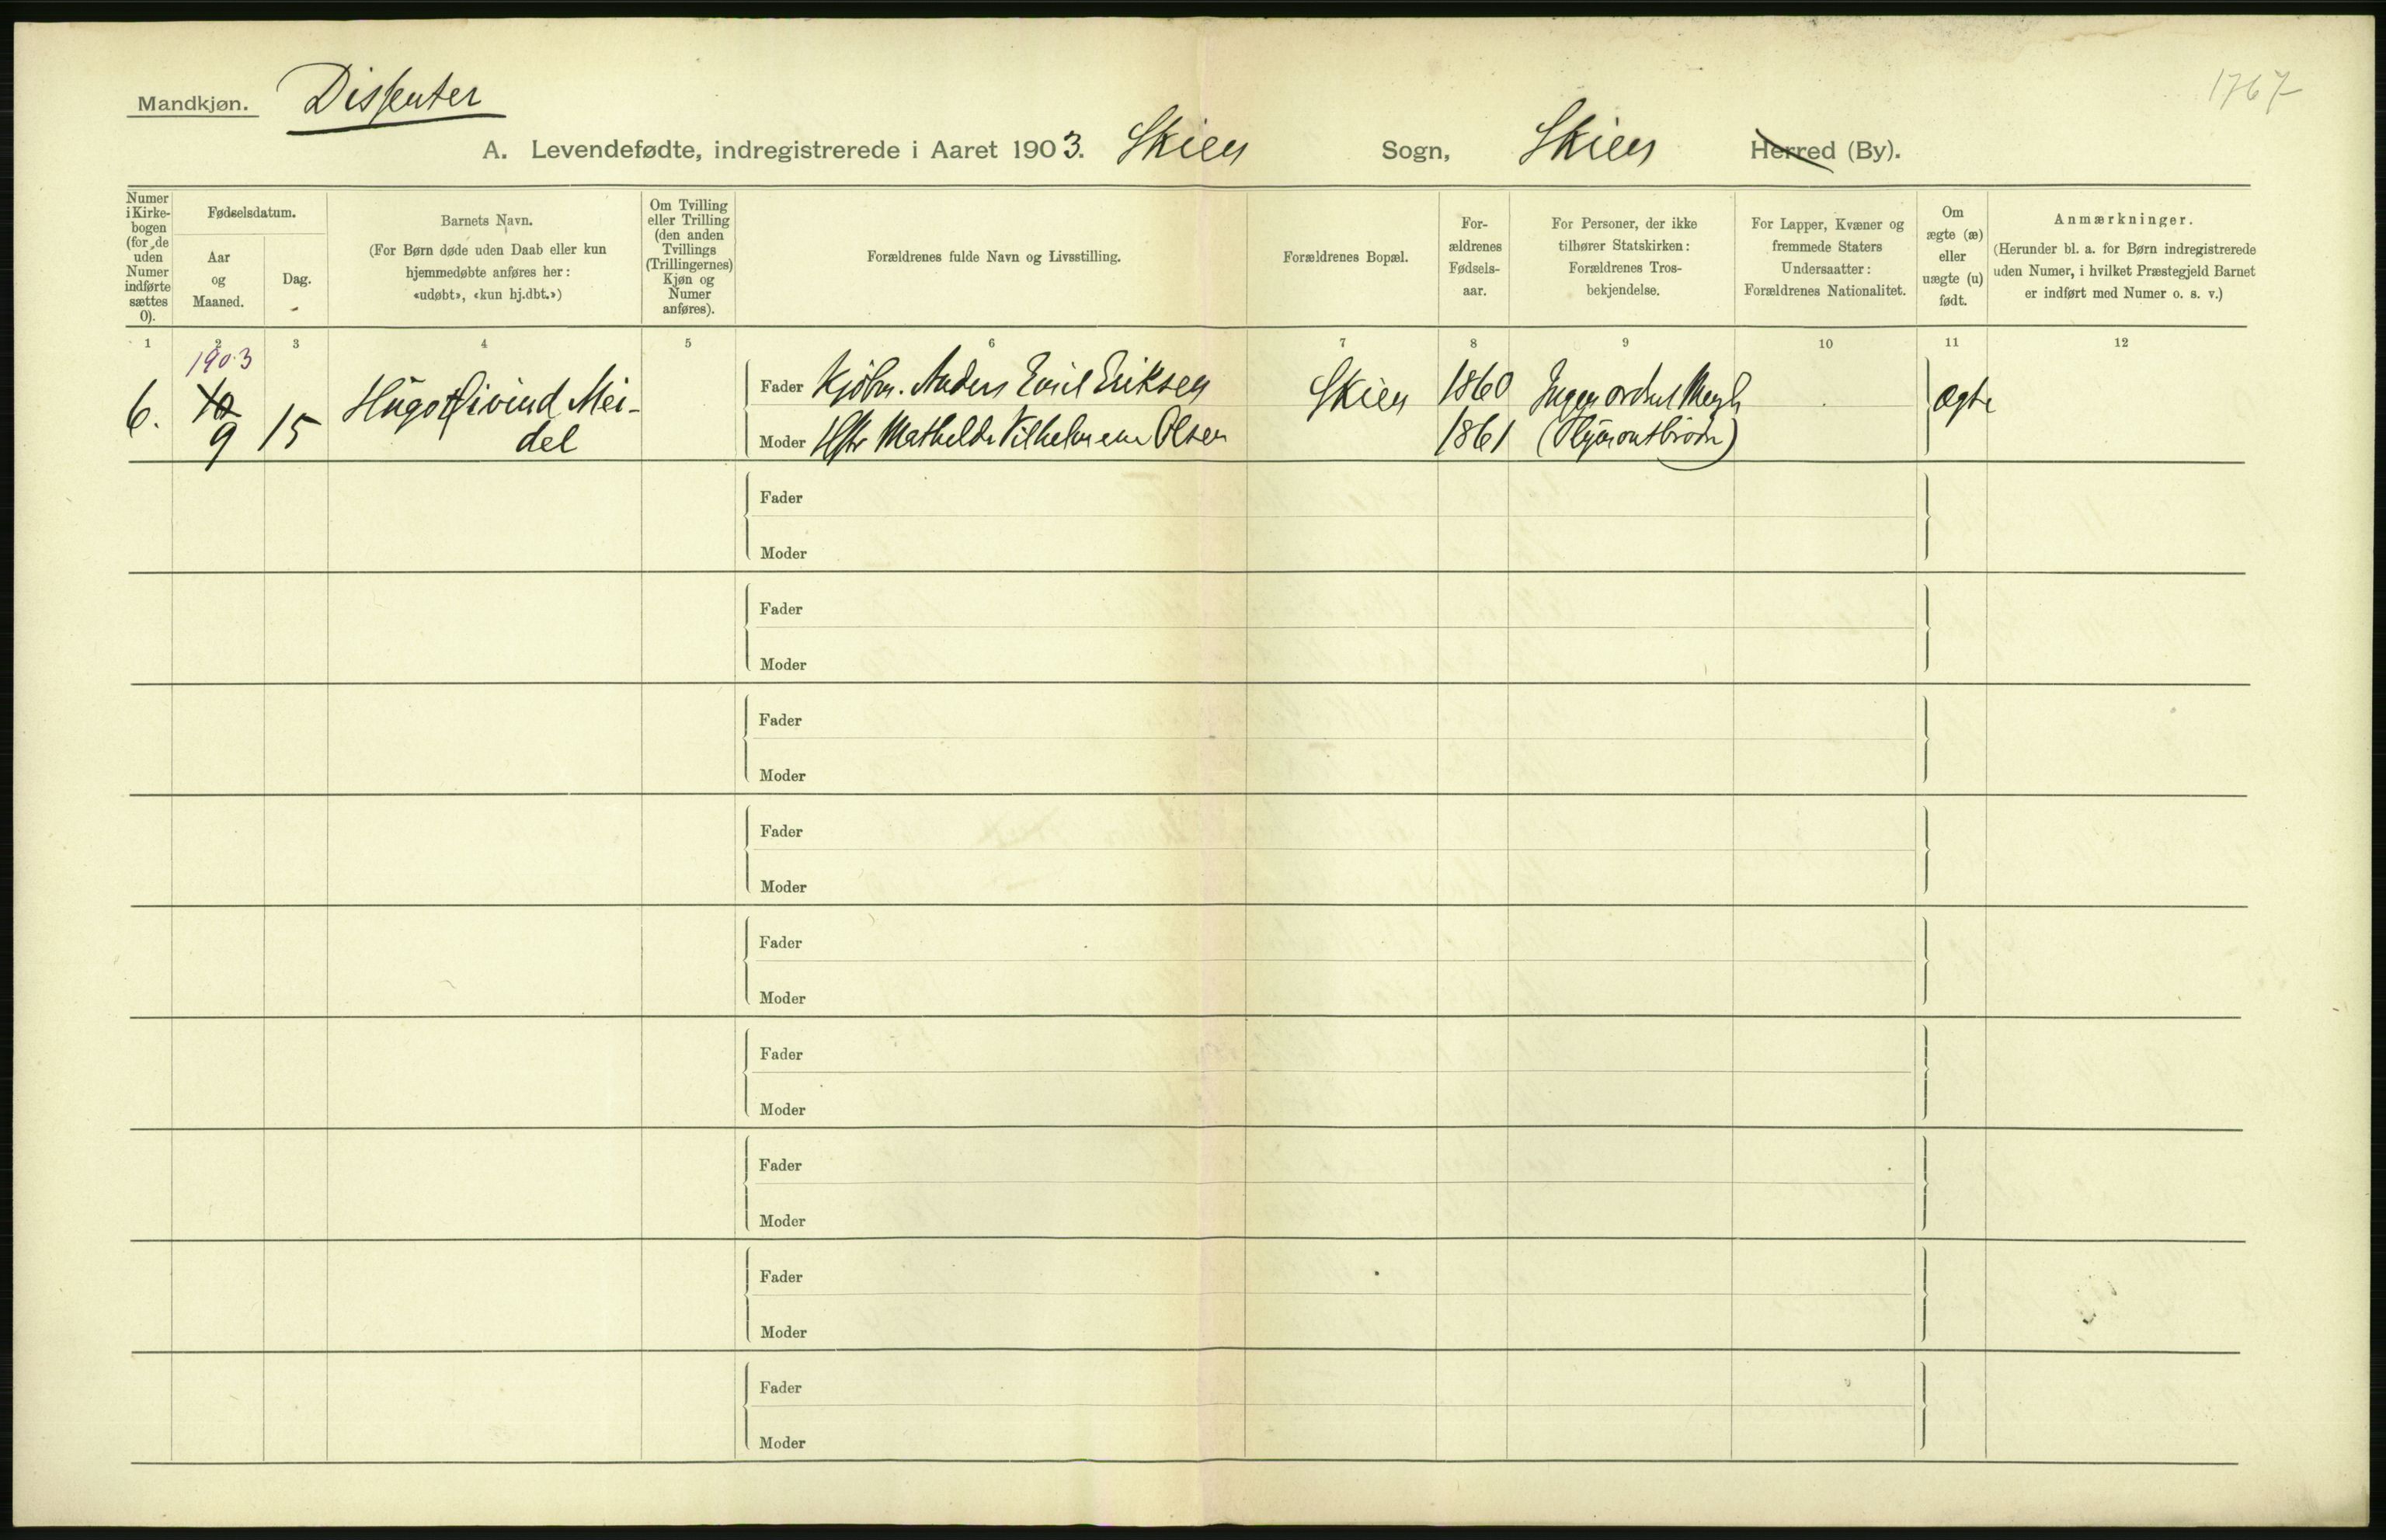 1767
Mandkjøn. Dissenter
A. Levendefødte, indregistrerede i Aaret 1903. Skien Sogn, Skien Herred (By).
Numer
i Kirke-
bogen
(for de
uden
Numer
indførte
sættes
0).
Fødselsdatum.
Aar
og
Maaned.
Dag.
Barnets Navn.
(For Børn døde uden Daab eller kun
hjemmedøbte anføres her:
«udøbt», «kun hj.dbt.»)
Om Tvilling
eller Trilling
(den anden
Tvillings
(Trillingernes)
Kjøn og
Numer
anføres).
Forældrenes fulde Navn og Livsstilling.
Forældrenes Bopæl.
For-
ældrenes
Fødsels-
aar.
For Personer, der ikke
tilhører Statskirken:
Forældrenes Tros-
bekjendelse.
For Lapper, Kvæner og
fremmede Staters
Undersaatter:
Forældrenes Nationalitet.
Om
ægte (æ)
eller
uægte (u)
født.
Anmærkninger.
(Herunder bl. a. for Børn indregistrerede
uden Numer, i hvilket Præstegjeld Barnet
er indført med Numer o. s. v.)
1 2 3 4 5 6 7 8 9 10 11 12
1903
6. 9 15 Hugo Øivind Mei-
del
Fader Kjøbm. Anders Emil Eriksen Skien 1860 Ingen ægte
Moder Mathilde Vilhelmine Olsen 1861
Fader
Moder
Fader
Moder
Fader
Moder
Fader
Moder
Fader
Moder
Fader
Moder
Fader
Moder
Fader
Moder
Fader
Moder